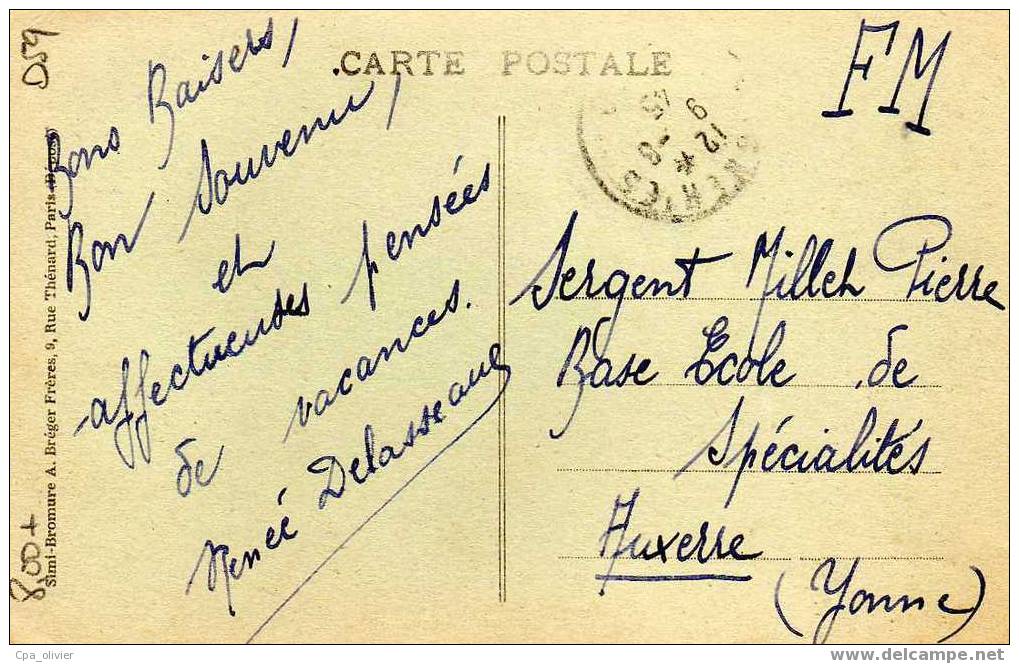 D59
.CARTE POSTALE
FM
Bons Baisers,
Bon Souvenir,
et
affectueuses pensées
de vacances.
Renée Delasseaux
12
9
Sergent Millet Pierre
Base Ecole de
Spécialités
Auxerre
(Yonne)
Simi-Bromure A. Bréger Frères, 9, Rue Thénard, Paris
8,00+
Cpa_olivier
www.delcampe.net